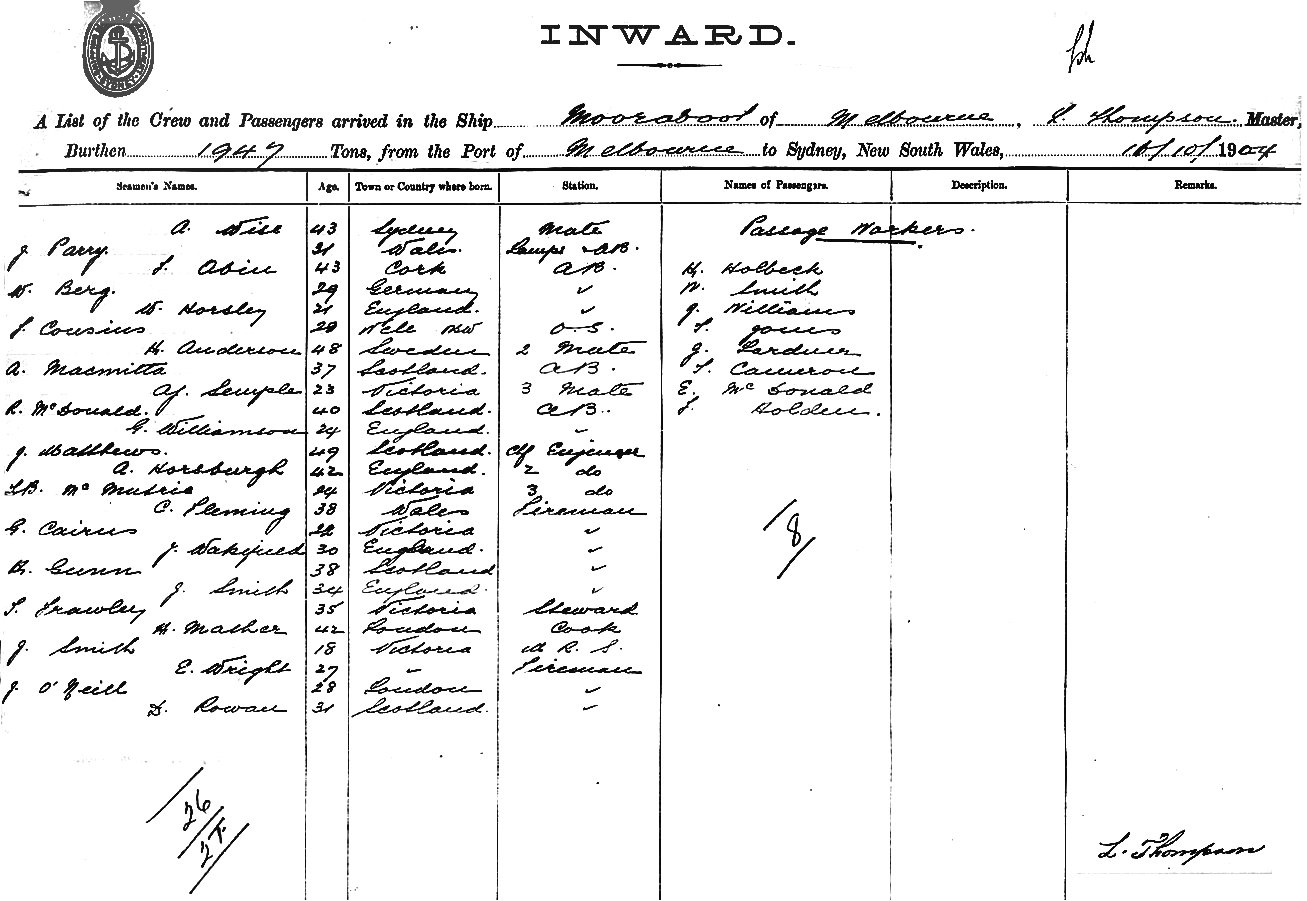 INWARD.
A List of the Crew and Passengers arrived in the Ship Moorabool of Melbourne, L Thompson. Master,
Burthen 1947 Tons, from the Port of Melbourne to Sydney, New South Wales, 16/10/1904
Seamen's Names. Age. Town or Country where born. Station. Names of Passengers. Description. Remarks.
A. Wise 43 Sydney Mate Passage Workers.
J Parry. 31 Wales. Lamps & AB.
43 Cork AB. H. Holbeck
W. Berg. 29 Germany ✓ W. Smith
W. Horsley 21 England. ✓ J. Williams
J. Cousins 29 NSW O.S. T. Jones
H. Anderson 48 Sweden 2 Mate J. Gardner
A. Macmitta 37 Scotland. AB. T. Cameron
Semple 23 Victoria 3 Mate E. McDonald
R. McDonald. 40 Scotland. AB. Holden.
G. Williamson 24 England. ✓
J. Matthews. 49 Scotland. Chf Engineer
A. Horsburgh 42 England. 2 do
McMutrie 24 Victoria 3 do
C. Fleming 38 Wales Fireman
G. Cairns 22 Victoria ✓
J. Wakefield 30 England. ✓
H. Gunn 38 Scotland ✓
J. Smith 34 England. ✓
T. Frawley 35 Victoria Steward
H. Mather 42 London Cook
J. Smith 18 Victoria M R. S.
E. Wright 27 " Fireman
J. O'Neill 28 London ✓
D. Rowan 31 Scotland. ✓
8
26
27.
L. Thompson